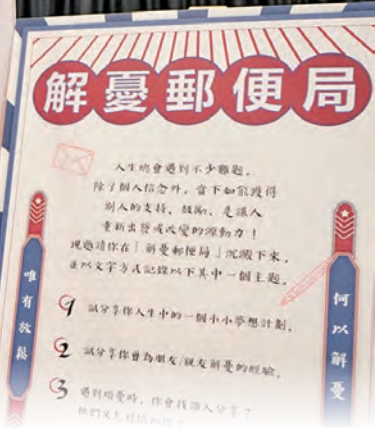 解憂郵便局
人生總會遇到不少難題，
除了個人信念外，當下如能獲得
別人的支持、鼓勵，是讓人
重新出發或改變的源動力！
現邀請你在「解憂郵便局」沉澱下來，
並以文字方式記錄以下其中一個主題。
唯有放鬆
何以解憂
1 試分享你人生中的一個小小夢想計劃。
2 試分享你曾為朋友/親友解憂的經驗。
3 遇到煩憂時，你會找誰人分享？